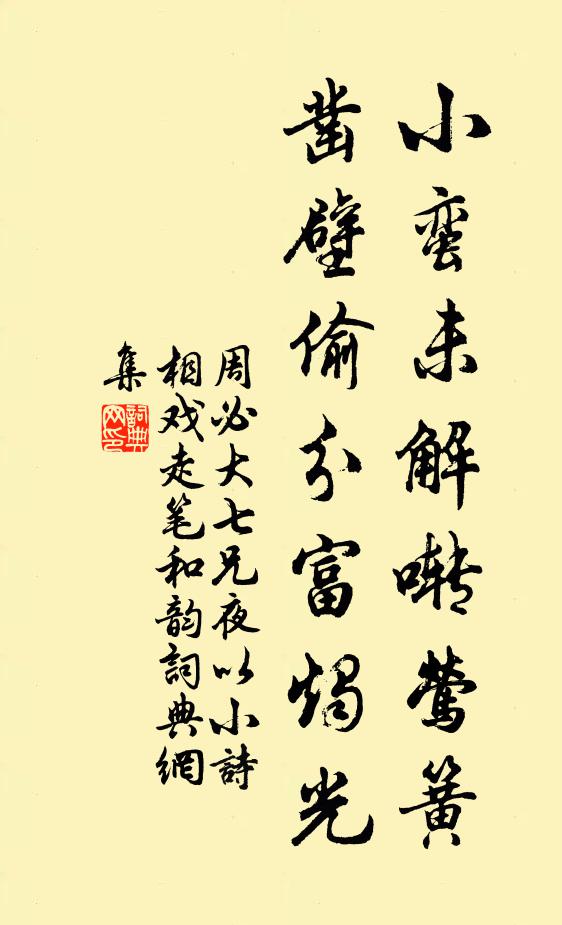 小蛮未解啭莺簧
凿壁偷分富烛光
周必大七兄夜以小詩
相戏走笔和韵詞典網
集
詞典
网印